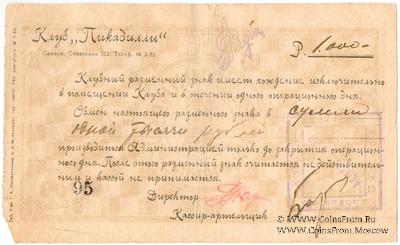 Клуб „Пикадилли“
Самара, Советская 112. Телеф. № 2-31.
Р. 1.000-
Клубный разменный знак имеет хождение исключительно
в помещении Клуба и в течении одного операционного дня.
Обмен настоящего разменного знака в сумме
одной тысячи рублей
производится Администрацией только до закрытия операцион-
ного дня. После этого разменный знак считается не действитель-
ным и кассой не принимается.
95
Директор
Кассир-артельщик
© www.CoinsFrom.Ru
www.CoinsFrom.Moscow